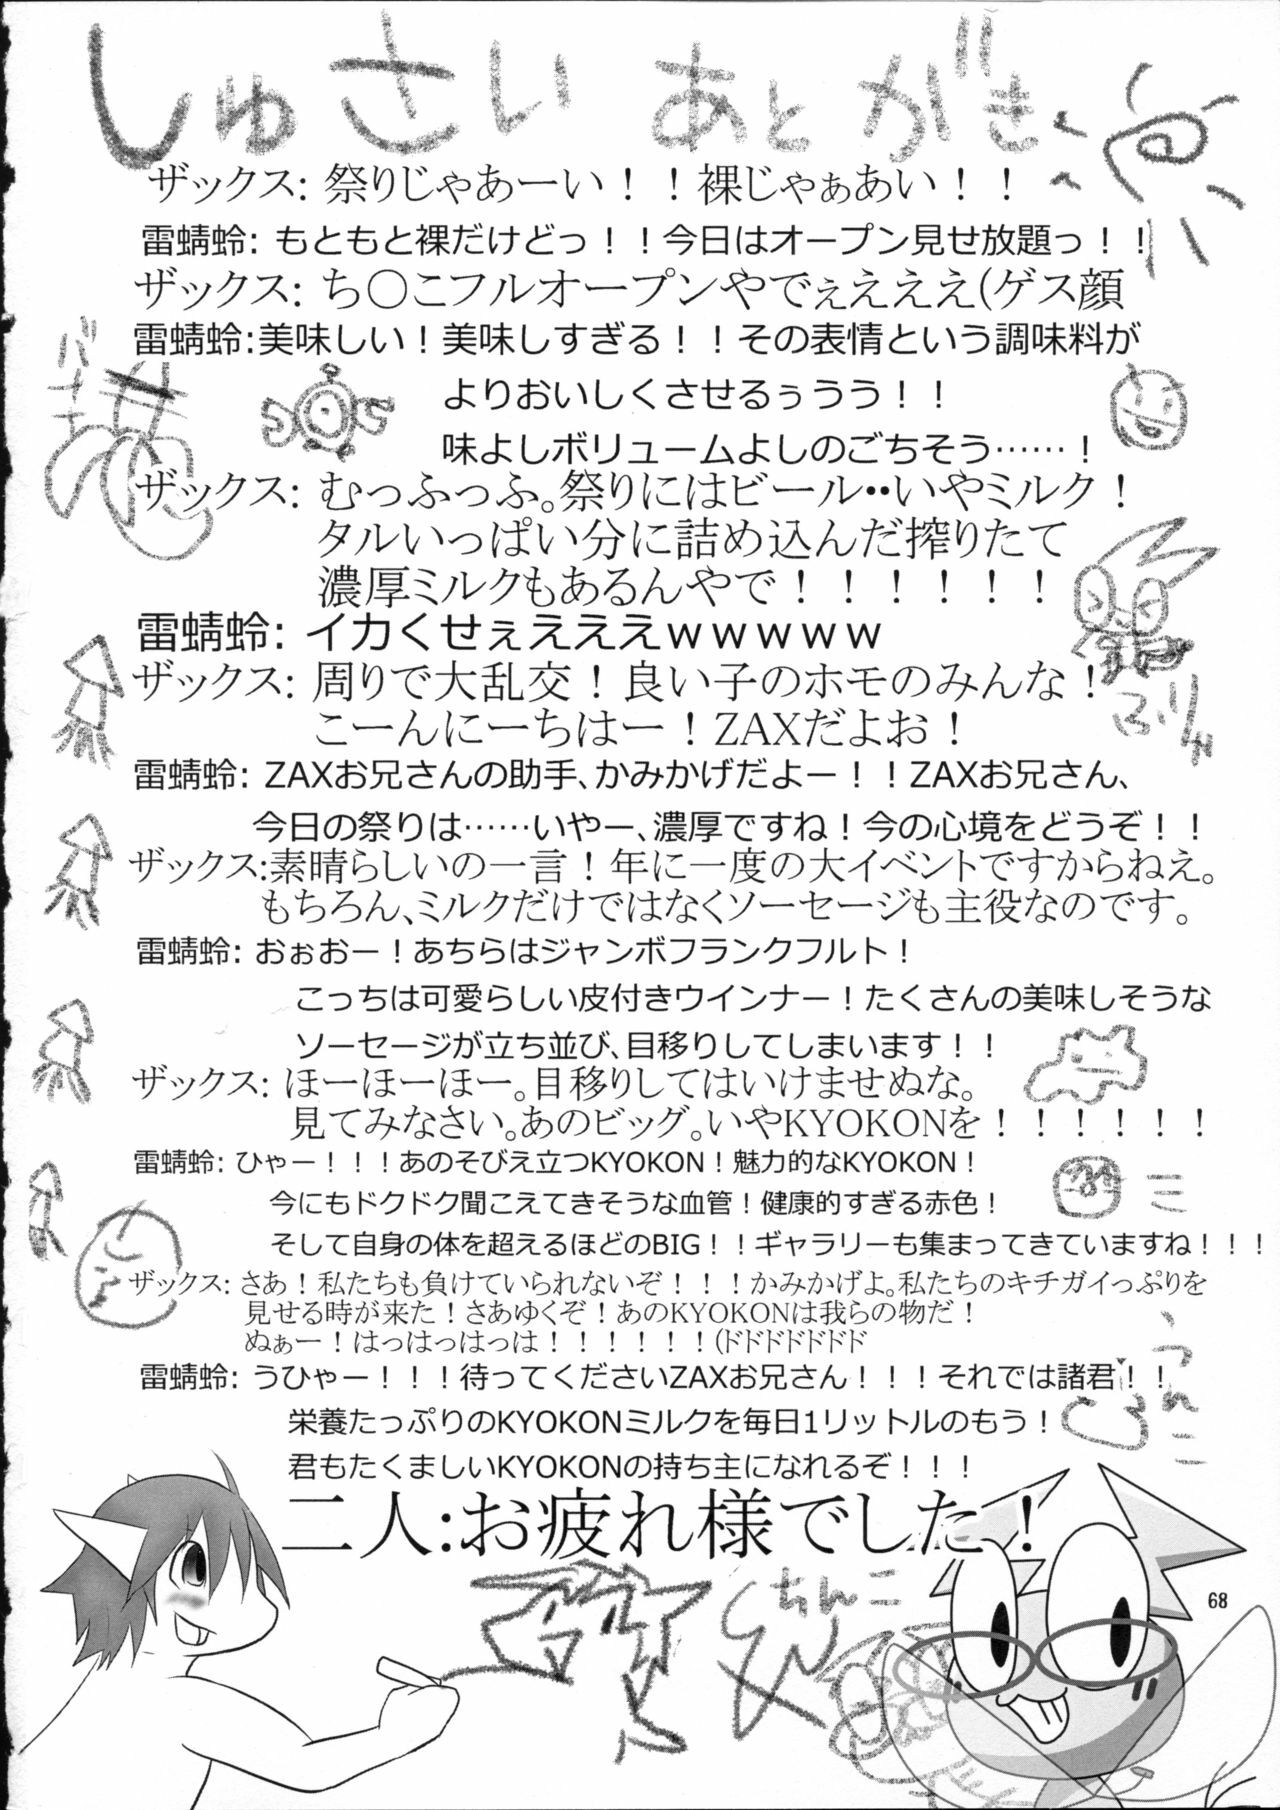 しゅさい あとがき
ザックス: 祭りじゃあーい！！裸じゃぁあい！！
雷蜻蛉: もともと裸だけどっ！！今日はオープン見せ放題っ！！
ザックス: ち○こフルオープンやでぇえええ(ゲス顔
雷蜻蛉:美味しい！美味しすぎる！！その表情という調味料が
よりおいしくさせるぅうう！！
味よしボリュームよしのごちそう……！
バナナ
ザックス: むっふっふ。祭りにはビール・・いやミルク！
タルいっぱい分に詰め込んだ搾りたて
濃厚ミルクもあるんやで！！！！！！
雷蜻蛉: イカくせぇえええｗｗｗｗｗ
ザックス: 周りで大乱交！良い子のホモのみんな！
こーんにーちはー！ZAXだよお！
雷蜻蛉: ZAXお兄さんの助手、かみかげだよー！！ZAXお兄さん、
今日の祭りは……いやー、濃厚ですね！今の心境をどうぞ！！
ザックス:素晴らしいの一言！年に一度の大イベントですからねえ。
もちろん、ミルクだけではなくソーセージも主役なのです。
雷蜻蛉: おぉおー！あちらはジャンボフランクフルト！
こっちは可愛らしい皮付きウインナー！たくさんの美味しそうな
ソーセージが立ち並び、目移りしてしまいます！！
ザックス: ほーほーほー。目移りしてはいけませぬな。
見てみなさい。あのビッグ。いやKYOKONを！！！！！！
雷蜻蛉: ひゃー！！！あのそびえ立つKYOKON！魅力的なKYOKON！
今にもドクドク聞こえてきそうな血管！健康的すぎる赤色！
そして自身の体を超えるほどのBIG！！ギャラリーも集まってきていますね！！！
ザックス: さあ！私たちも負けていられないぞ！！！かみかげよ。私たちのキチガイっぷりを
見せる時が来た！さあゆくぞ！あのKYOKONは我らの物だ！
ぬぁー！はっはっはっは！！！！！！(ドドドドドドド
雷蜻蛉: うひゃー！！！待ってくださいZAXお兄さん！！！それでは諸君！！
栄養たっぷりのKYOKONミルクを毎日1リットルのもう！
君もたくましいKYOKONの持ち主になれるぞ！！！
うんこ
二人:お疲れ様でした！
ちんこ
68